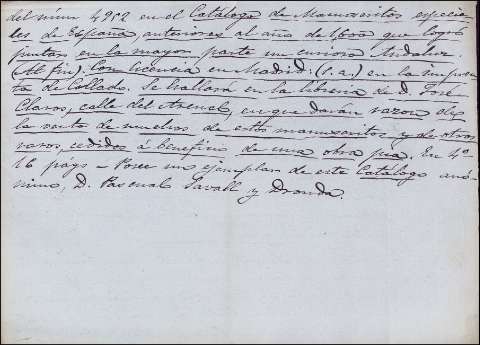 del núm 4952 en el Catálogo de Manuscritos especia-
les de España anteriores al año de 1600 que logró
juntar en la mayor parte un curioso Andaluz.
(Al fin); Con licencia en Madrid: (s.a.) en la impren-
ta de Collado. Se hallará en la librería de D. José
Claros, calle del Arenal, en que darán razon de
la venta de muchos de estos manuscritos y de otros
raros cedidos á beneficio de una obra pia. En 4º
16 pags - Posee un ejemplar de este Catálogo anó-
nimo, D. Pascual Savall y Dronda.